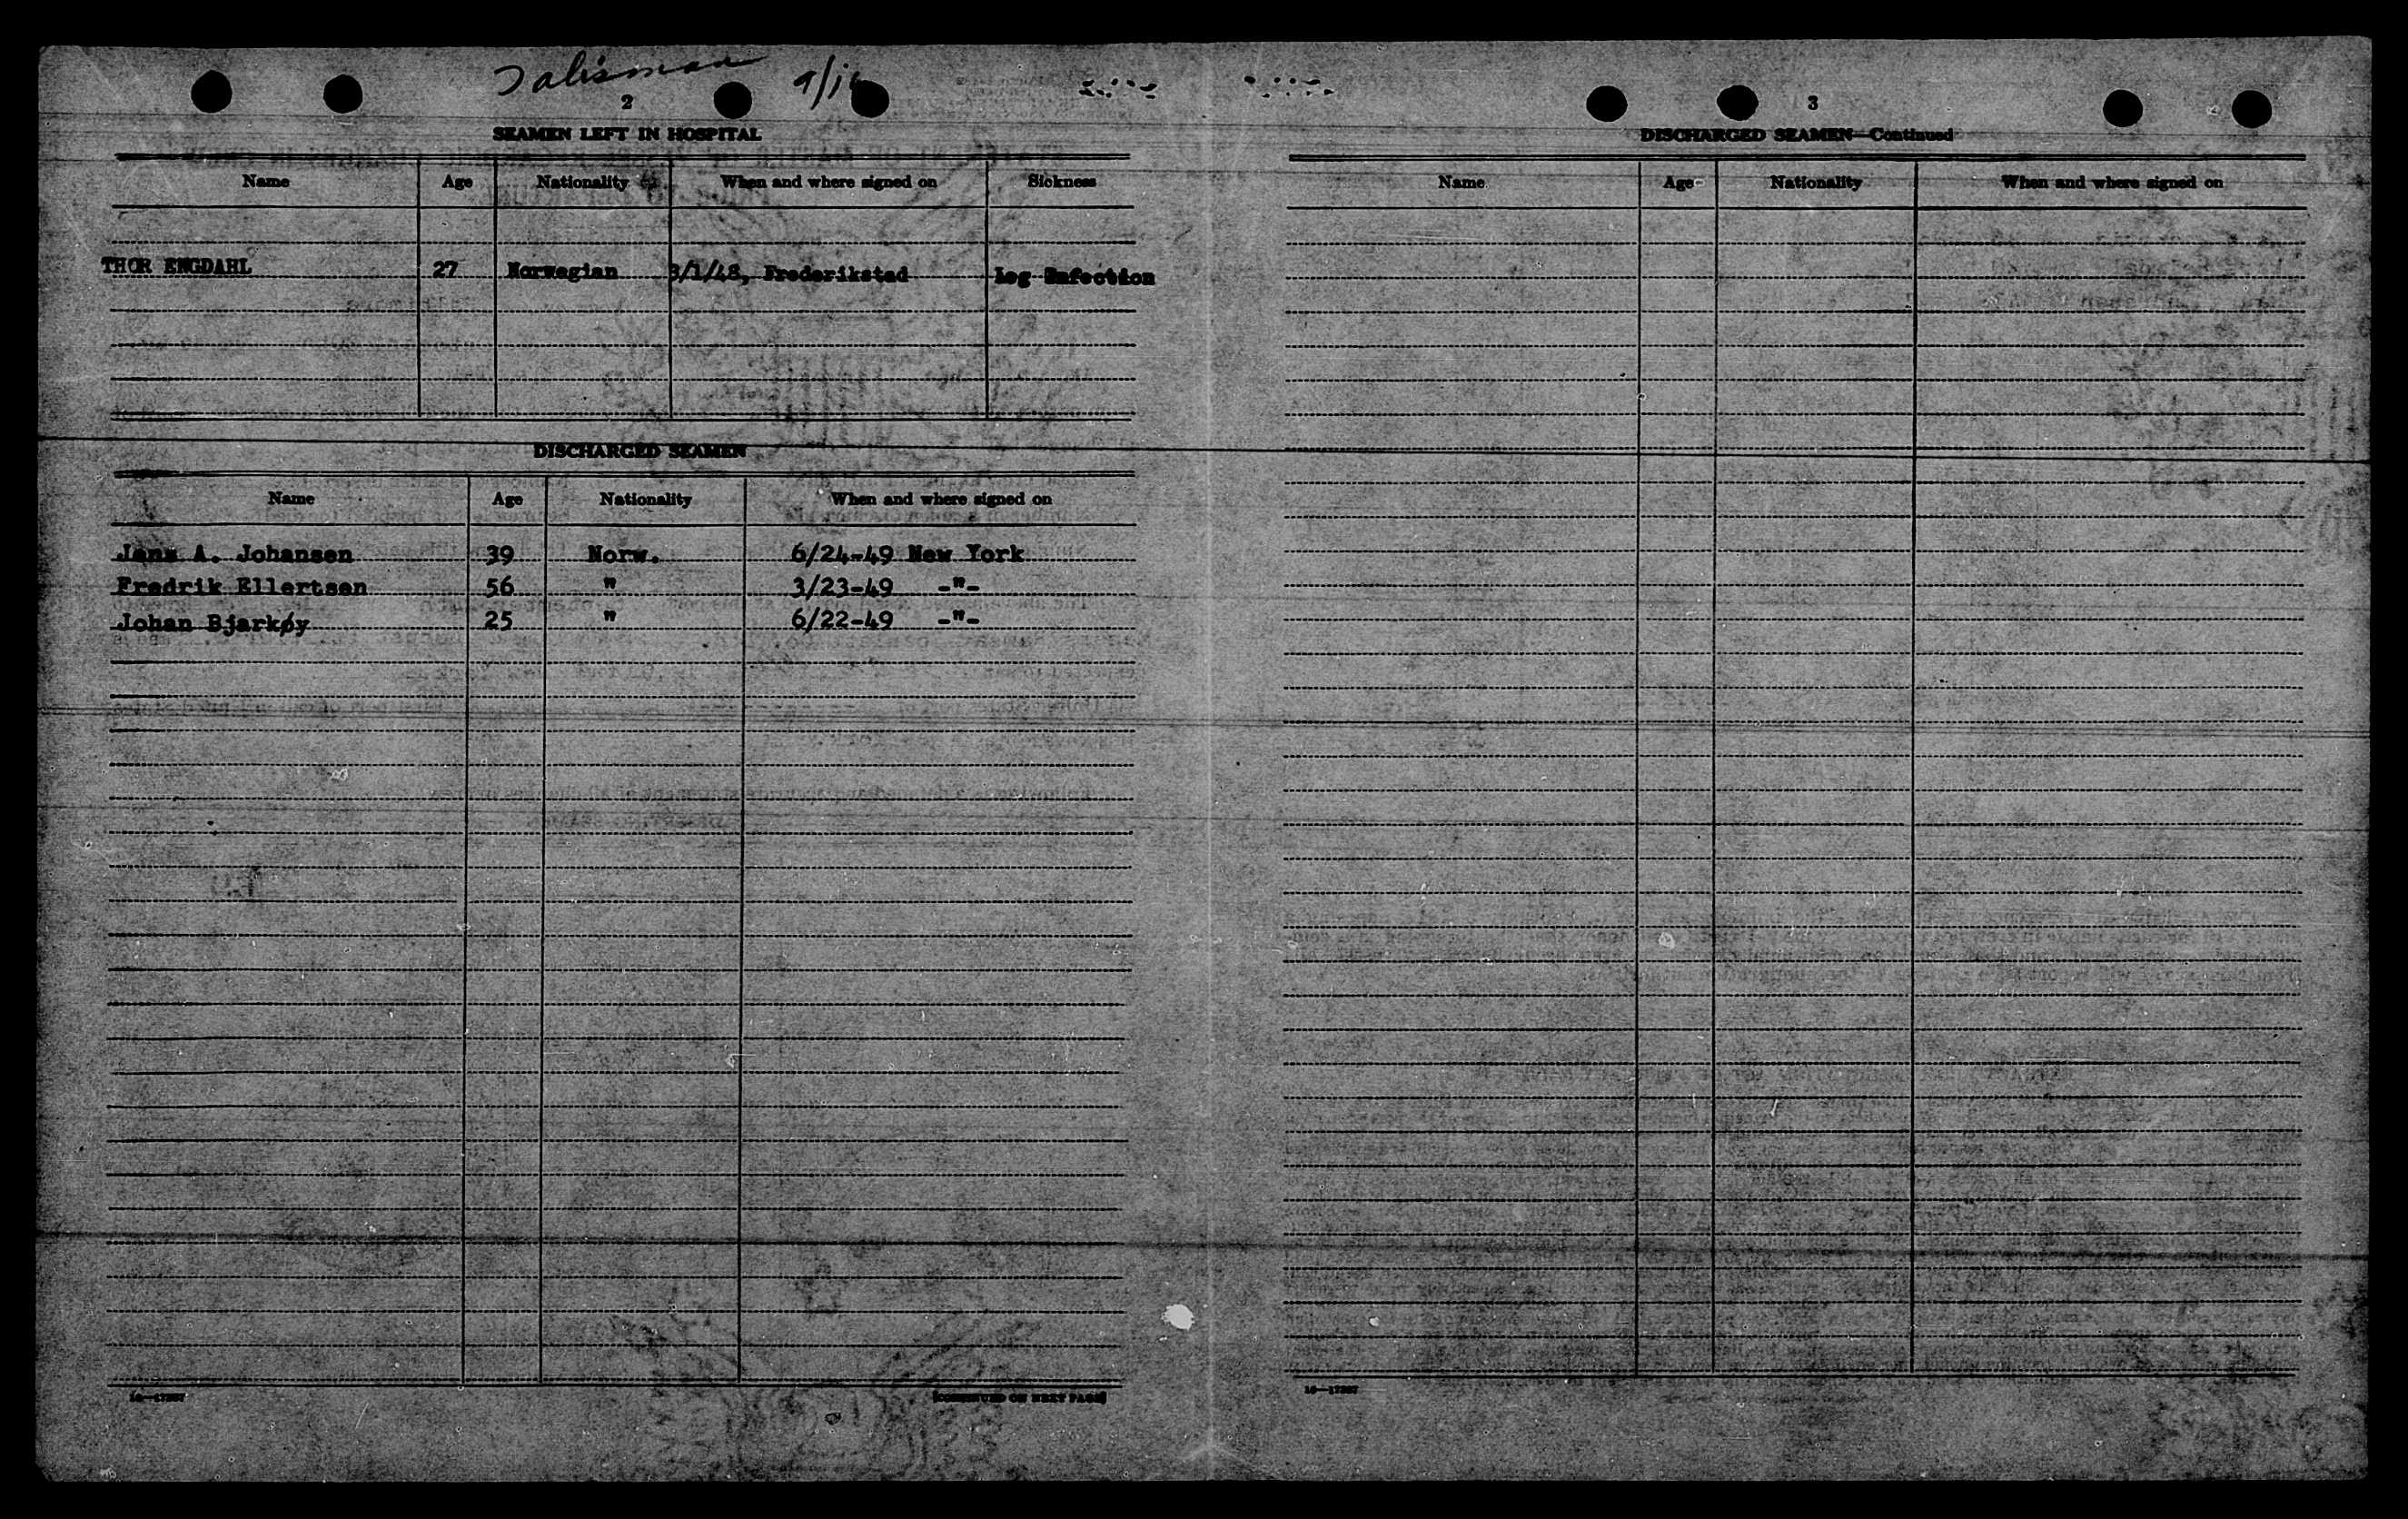 Talisman 9/1
2
SEAMEN LEFT IN HOSPITAL
Name Age Nationality When and where signed on Sickness
THOR ENGDAHL 27 Norwegian 3/1/48, Frederikstad Leg Enfection
DISCHARGED SEAMEN
Name Age Nationality When and where signed on
Jens A. Johansen 39 Norw. 6/24-49 New York
Fredrik Ellertsen 56 " 3/23-49 -"-
Johan Bjarkøy 25 " 6/22-49 -"-
16—17287
[CONTINUED ON NEXT PAGE]
3
DISCHARGED SEAMEN—Continued
Name Age Nationality When and where signed on
16—17287